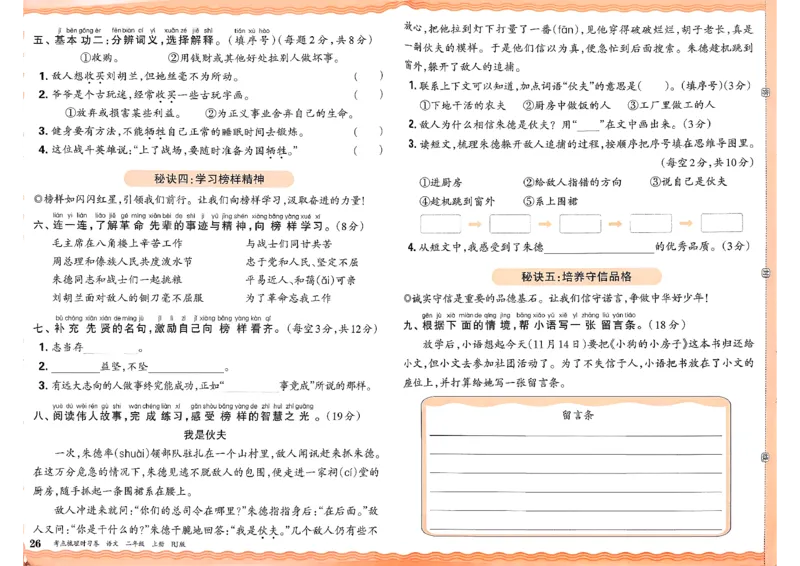 jī běn gōng èr fēn biàn cí yì xuǎn zé jiě shì tián xù hào
五、基本功二:分辨词义,选择解释。(填序号)(每题2分,共8分)
①收购。 ②用钱财或其他好处拉别人做坏事。
1. 敌人想收买刘胡兰,但她丝毫不为所动。 ( )
2. 爷爷是个古玩迷,经常收买一些古玩字画。 ( )
①放弃或损害某些利益。 ②为正义事业舍弃自己的生命。
3. 健身要有方法,不能牺牲自己正常的睡眠时间去锻炼。 ( )
4. 这位战斗英雄说:“上了战场,要随时准备为国牺牲。” ( )
秘诀四:学习榜样精神
◎榜样如闪闪红星,引领我们前行。让我们向榜样学习,汲取奋进的力量!
lián yi lián liǎo jiě gé mìng xiān bèi de shì jì yǔ jīng shén xiàng bǎng yàng xué xí
六、连一连,了解革命先辈的事迹与精神,向榜样学习。(8分)
毛主席在八角楼上辛苦工作 与战士们同甘共苦
周总理和傣族人民共度泼水节 忠于党和人民、坚定不屈
朱德同志和战士们一起挑粮 平易近人、和蔼(ǎi)可亲
刘胡兰面对敌人的铡刀毫不屈服 为了革命忘我工作
bǔ chōng xiān xián de míng jù jī lì zì jǐ xiàng bǎng yàng kàn qí
七、补充先贤的名句,激励自己向榜样看齐。(每空3分,共12分)
1. 志当存________。
2. ________益坚,不坠________。
3. 有远大志向的人做事终究能成功,正如“________事竟成”所说的那样。
yuè dú wěi rén gù shi wán chéng liàn xí gǎn shòu bǎng yàng de zhì huì zhī guāng
八、阅读伟人故事,完成练习,感受榜样的智慧之光。(19分)
我是伙夫
一次,朱德率(shuài)领部队驻扎在一个山村里,敌人闻讯赶来抓朱德。
在这万分危急的情况下,朱德见逃不脱敌人的包围,便走进一家祠(cí)堂的
厨房,随手抓起一条围裙系在腰上。
敌人冲进来就问:“你们的总司令在哪里?”朱德指指身后:“在后面。”敌
人又问:“你是干什么的?”朱德干脆地回答:“我是伙夫。”几个敌人仍有些不
26 考点梳理时习卷 语文 二年级 上册 RJ版
放心,把他拉到灯下打量了一番(fān),见他穿得破破烂烂,胡子老长,真是
一副伙夫的模样。于是他们信以为真,便急忙到后面搜索。朱德趁机跳到
窗外,躲开了敌人的追捕。
1. 联系上下文可以知道,加点词语“伙夫”的意思是( )。(填序号)(3分)
①下地干活的农夫 ②厨房中做饭的人 ③工厂里做工的人
2. 敌人为什么相信朱德是伙夫?用“____”在文中画出来。(3分)
3. 读短文,梳理朱德躲开敌人追捕的过程,按顺序把序号填在思维导图里。
(每空2分,共10分)
①进厨房 ②给敌人指错的方向 ③说自己是伙夫
④趁机跳到窗外 ⑤系上围裙
4. 从短文中,我感受到了朱德________________的优秀品质。(3分)
秘诀五:培养守信品格
◎诚实守信是重要的品德基石。让我们信守诺言,争做中华好少年!
gēn jù xià miàn de qíng jìng bāng xiǎo yǔ xiě yì zhāng liú yán tiáo
九、根据下面的情境,帮小语写一张留言条。(18分)
放学后,小语想起今天(11月14日)要把《小狗的小房子》这本书归还给
小文,但小文去参加社团活动了。为了不失信于人,小语把书放在了小文的
座位上,并打算给她写一张留言条。
留言条